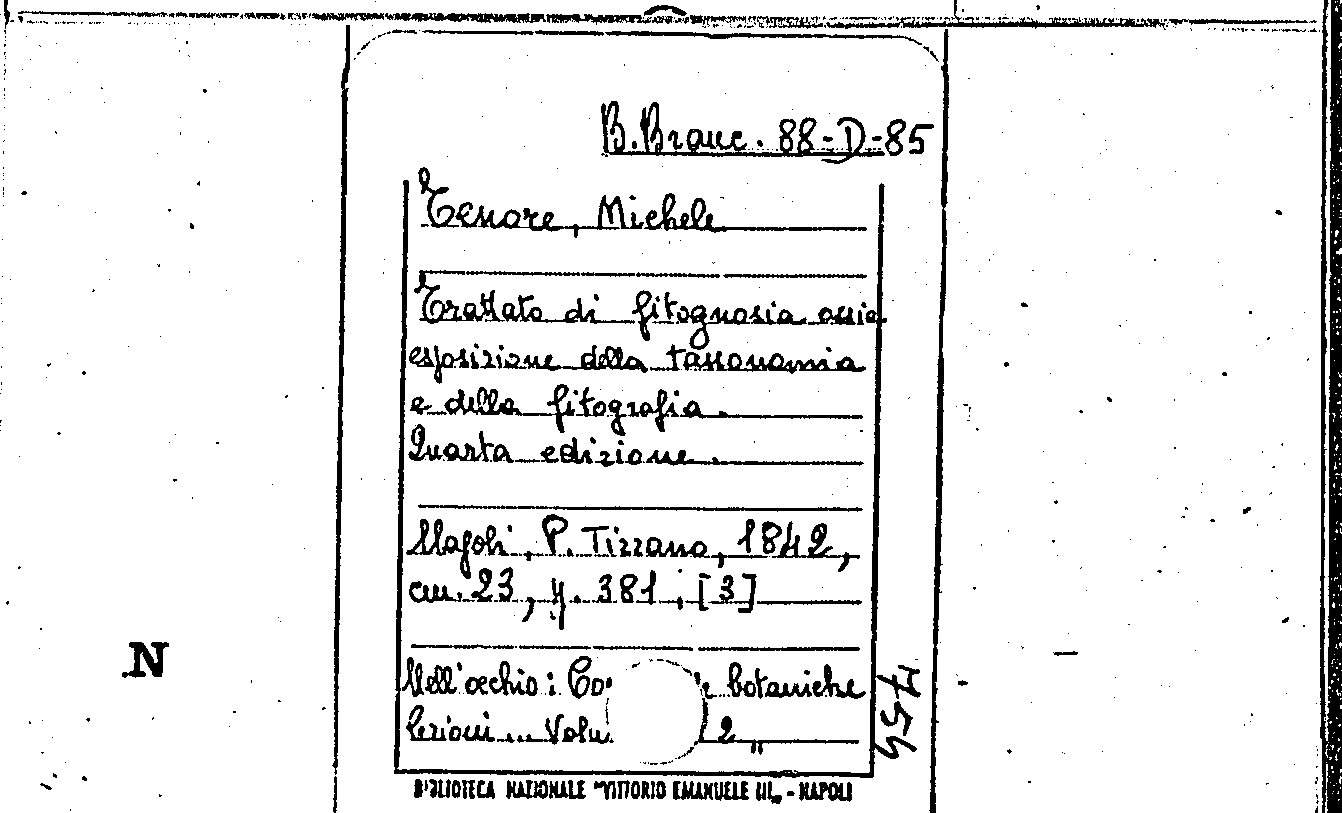 B. Branc. 88-D-85
Tenore, Michele
Trattato di fitognosia ossia
esposizione della tassonomia
e della fitografia.
Quarta edizione.
Napoli, P. Tizzano, 1842,
cm. 23, p. 381, [3]
Nell'occhio: botaniche
lezioni... 2"
754
N
BIBLIOTECA NAZIONALE "VITTORIO EMANUELE III" - NAPOLI